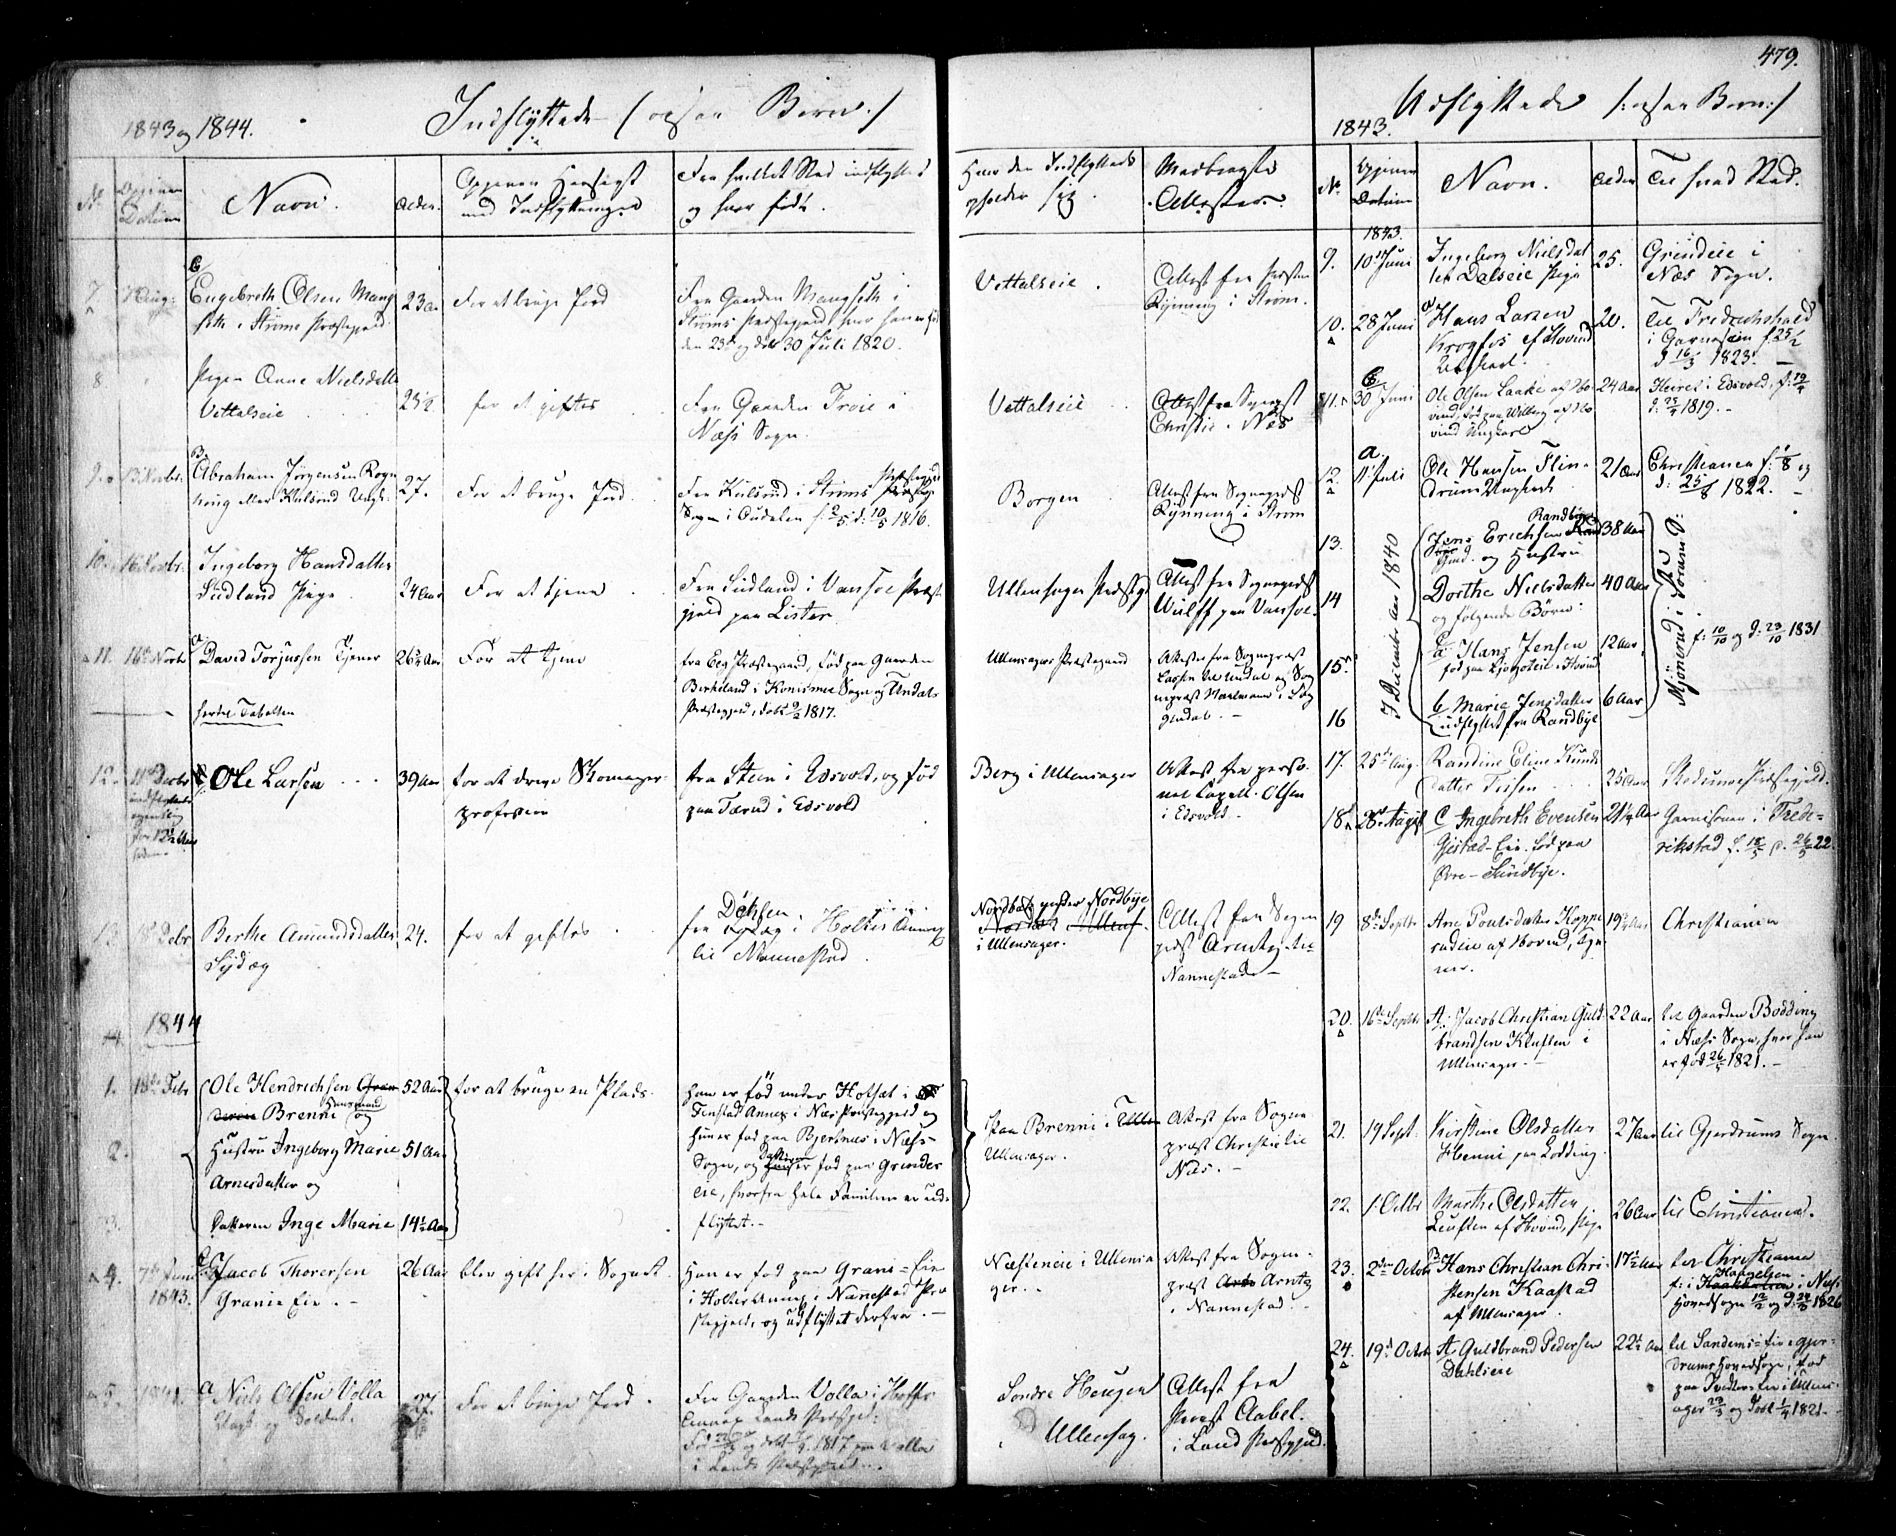 479.
1843 og 1844.
Indflÿttede (ogsaa Børn:)
No
Datum
Navn.
Alder.
Opgiven Hensigt
med Indflytningen
Fra hvilket Sted indflyttet
og hvor født.
Hvor den Indflyttede
opholder sig
Medbragte
Attester.
7
Aug:
Engebreth Olsen Mang
seth i Strøms Præstegjeld
23
For at bruge Jord
Fra Gaarden Mangseth i
Strøms Præstegjeld, hvor han er fød
den 23 og døbt 30 Juli 1820.
Vettalseie
Attest fra Præsten
Rÿnning i Strøm.
8
Pigen Anne Nielsdatter
Vettalseie
23½
for at giftes
Fra Gaarden Troie i
Næss Sogn.
Vettalseie
Attest fra Sognepræst
Christie i Næs
9.
13 Novbr.
Abraham Jørgensen Rogn
houg eller Kulsrud Ungk.
27.
For at bruge Jord
Fra Kulsrud i Strøms Præstegjeld
Sogn i Oudalen f: 2/5 d: 10/5 1816.
Borgen
Attest fra Sognepræst
Rÿnning i Strøm
10.
16 Novbr.
Ingeborg Hansdatter
Sudland Pige
24 Aar
For at tjene
Fra Sudland i Vansoe Præste
gjeld paa Lister
Ullensager Præstegj.
Attest fra Sognepræst
Wulff paa Vansoe.
11.
16 Novbr
David Torjussen Tjener
26½ Aar
For at tjene
fra Eeg Præstegaard, født paa Gaarden
Birkeland i Konsmoe Sogn og Undals
Præstegjeld, døbt 9/2 1817.
Ullensagers Præstegaard
Attester fra Sognepræst
Lassen til Undal og Sog
nepræst i Sog
gndal.
forbi Tabellen
12.
11 Decbr
indflyttede
egentlig
for 12½ Aar
siden.
Ole Larsen
39 Aar
for at drive Skomager-
profession
fra Steen i Edsvold, og fød
paa Tærud i Edsvold
Berg i Ullensager
Attest fra perso-
nel Capell. Olsen
i Edsvold.
13.
Decbr
Berthe Amundsdatter
24.
for at giftes
fra i Holter Annex
til Nannestad.
Nordbye
i Ullensager.
Attest fra Sogne
præst Arntz til
Nannestad
14.
1844
1.
18de Febr
Ole Hendrichsen
Brenni Huusmand og
52 Aar
for at bruge en Plads.
han er fød under Hofsæt i
Fenstad Annex i Næs Præstegjeld og
hun er fød paa Bjertnæs i Næss-
Sogn, og Datteren er fød paa Grinder
eie, hvorfra hele Familien er ud-
flyttet.
Paa Brenni i
Ullensager.
Attest fra Sogne
præst Christie til
Næs.
2.
Hustru Ingeborg Marie
Arnesdatter og
51 Aar
3.
Datteren Inge Marie
14½ Aar
4.
7de Juni
1843.
Jacob Thoresen
Granie Eie.
26 Aar
blev gift her i Sognet
Han er fød paa Grani-Eie
i Holter Annex i Nanestad Præ
stegjeld, og udflyttet derfra.
Næsteneie i Ullensa
ger.
Attest fra Sogne-
præst Arntz
i Nannestad.
5.
Niels Olsen Volla
Ungk og Soldat.
27
For at bruge Jord.
Fra Gaarden Volla i Hoffs
Annex Lands Præstgjed:
Fød og døbt 1817 paa Volla
i Lands Præstegjeld.
Søndre Hougen
Ullensag.
Attest fra
Præst Aabel.
i Land Præstgjed.
Udflyttede (:ogsaa Børn:)
1843.
No
Opgiven
Datum
Navn.
Alder
Til hvad Sted.
1843.
9.
10 Juni
Ingeborg Nielsdat
ter Dalseie Pige
25.
Grindeie i
Næs Sogn.
10.
28 Juni
Hans Larsen
Krogfos af Hovind
Ungkarl.
20.
Til Fredrickshald
i Garnison f. 25/2
d 16/3 1823.
11.
30 Juni
Ole Olsen Laake af Ho-
vind, fød paa Wilberg af Ho
vind Ungkarl
24 Aar
Heiret i Edsvold, f: 19/4
d: 25/4 1819.
12.
11 Juli
Ole Hansen Flin-
drum Ungkarl
21 Aar
Christiania f: 1/8 og
d: 25/8 1822.
I December Aar 1840
13.
Jens Erichsen Randbye
Gmd. og Hustru
38 Aar
Mjønerud i Sørum
14
Dorthe Nielsdatter
og følgende Børn:
40 Aar
15
a Hans Jensen
fød paa i Hovind
12 Aar
f: 10/10 og d: 23/10 1831
16
b Marie Jensdatter
udflyttet fra Randbye
6 Aar
17.
25de Aug.
Randine Eline Knuds
datter Tiisen
25 Aar
Skedsmoe Præstegjeld.
18
28de August
C Ingebreth Evensen
Gjestad-Eie. fød paa
Øvre-Sundbye.
21¼ Aar
Garnisonen i Frede-
rikstad f. 18/5 d. 26/5 22.
19
8de Septbr
Ane Poulsdatter Koppe
rudeie af Hovind, Tje
ner.
19½ Aar
Christiania
20.
16de Septbr
A. Jacob Christian Guld-
brandsen Kluften i
Ullensager.
22 Aar
til Gaarden Bodding
i Næss Sogn, hvor han
er fød 26/5 1821.
21.
19 Sept.
Kirstine Olsdatter
Henni paa Lodding
27 Aar
til Gjerdrums Sogn.
22.
1 Octbr
Marthe Olsdatter
Leuften af Hovind, Pige
26 Aar
til Christiania.
23.
2den Octob
Hans Christian Chri-
stensen Kaastad
af Ullensager
17½ Aar
til Christiania
f: i Haagelsen i Næss
Hovedsogn 12/2 og d: 24/3 1826
24.
19de Octob
A Guldbrand Pedersen
Dahlseie
22½ Aar
til Sandems-Eie i Gjer-
drums Hovedsogn, fød
paa i Ullens-
ager 23/3 og døbt 1/4 1821.